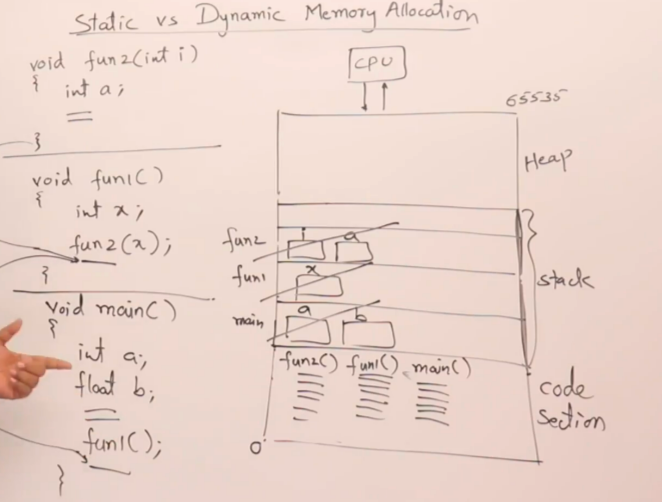 Static vs Dynamic Memory Allocation
void fun2(int i)
{
int a;
}
void fun1()
{
int x;
fun2(x);
}
void main()
{
int a;
float b;
fun1();
}
CPU
65535
Heap
fun2 i a
fun1 x
main a b
stack
fun2() fun1() main()
code
section
0